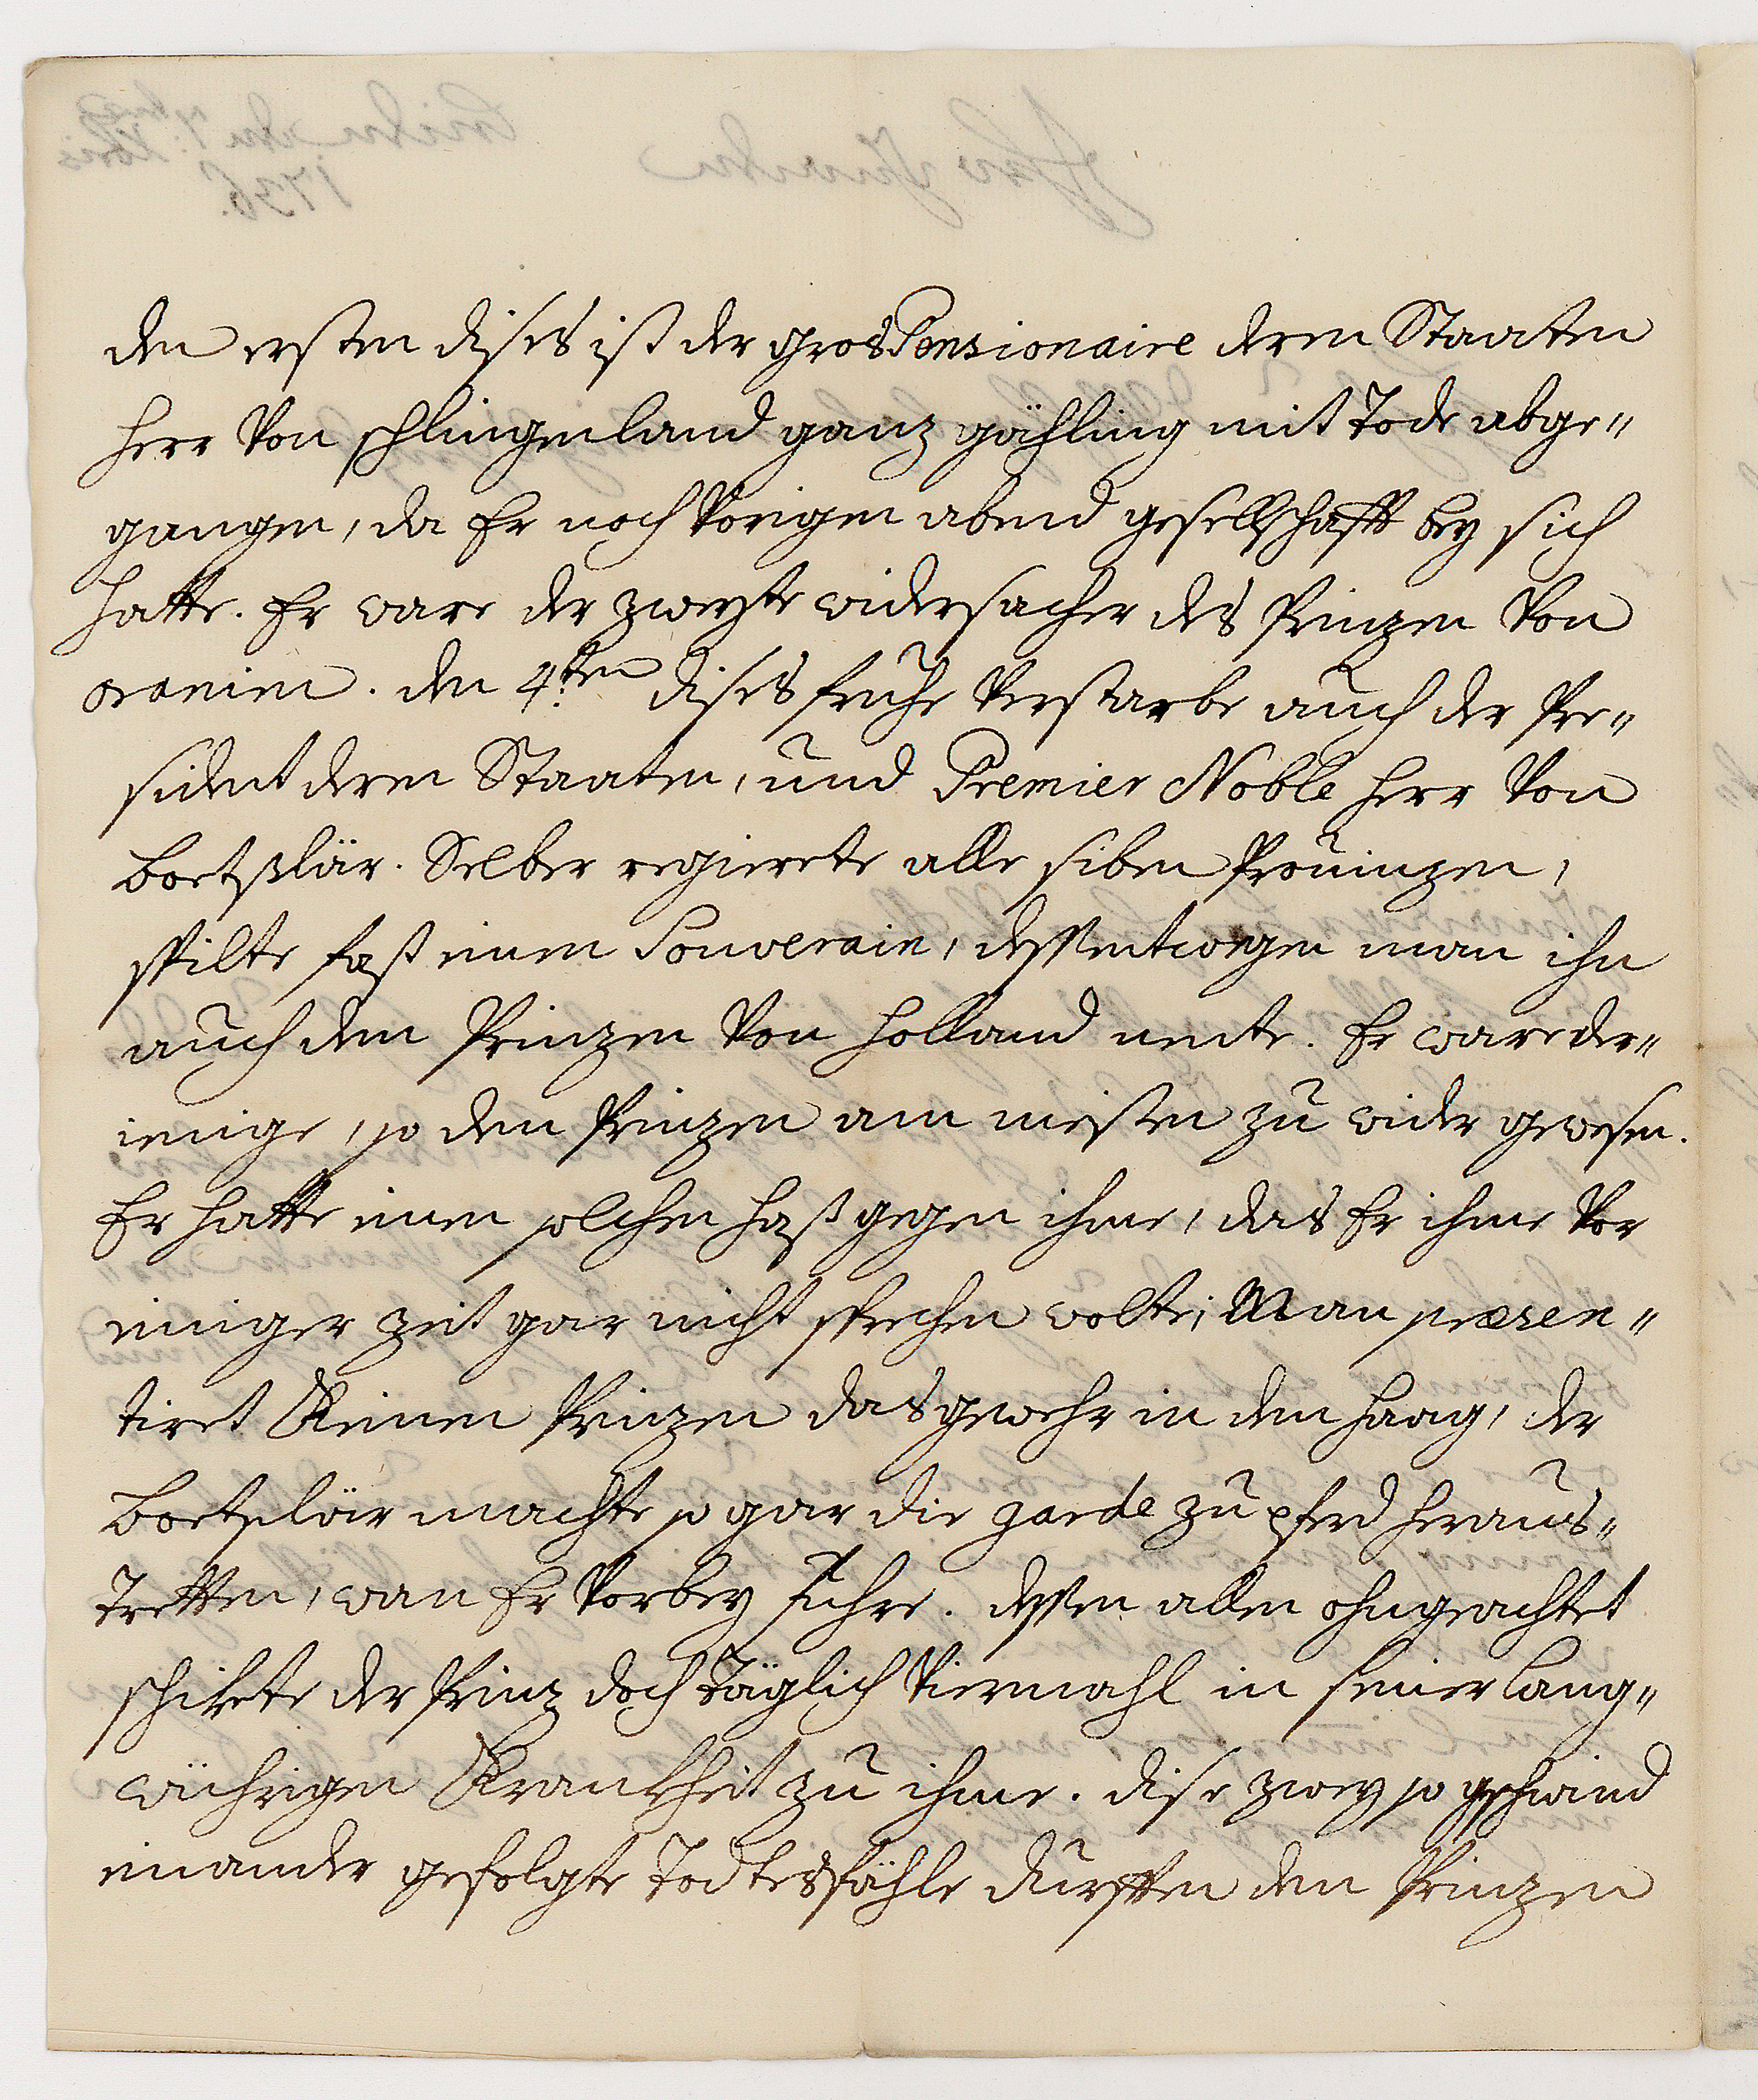 den ersten dises ist der grosPensionaire deren Staaten
herr von schlingenland ganz gähling mit Tode abge„
gangen, da Er noch vorigen abend gesellschafft bey sich
hatte. Er ware der zweyte widersacher des Prinzen von
oranien. den 4.ten dises frühe verstarbe auch der Pre„
sident deren Staaten, und Premier Noble herr von
boetslär. Selber regierete alle siben Prouinzen,
spilte fast einen Souverain, dessentwegen man ihn
auch den Prinzen von holland nente. Er ware der„
ienige, so dem Prinzen am meisten zu wider gewesen.
Er hatte einen solchen haß gegen ihme, das Er ihme vor
einiger zeit gar nicht sprechen wolte; Man præsen„
tiret Keinem Prinzen das gewehr in dem haag, der
boetslär machte so gar die garde zu pferd heraus„
Tretten, wan Er vorbey fuhre. dessen allen ohngeachtet
schikete der Prinz doch täglich viermahl in seiner lang„
währigen Krankheit zu ihme. dise zwey so geschwind
einander gefolgte Todtesfähle durfften den Prinzen